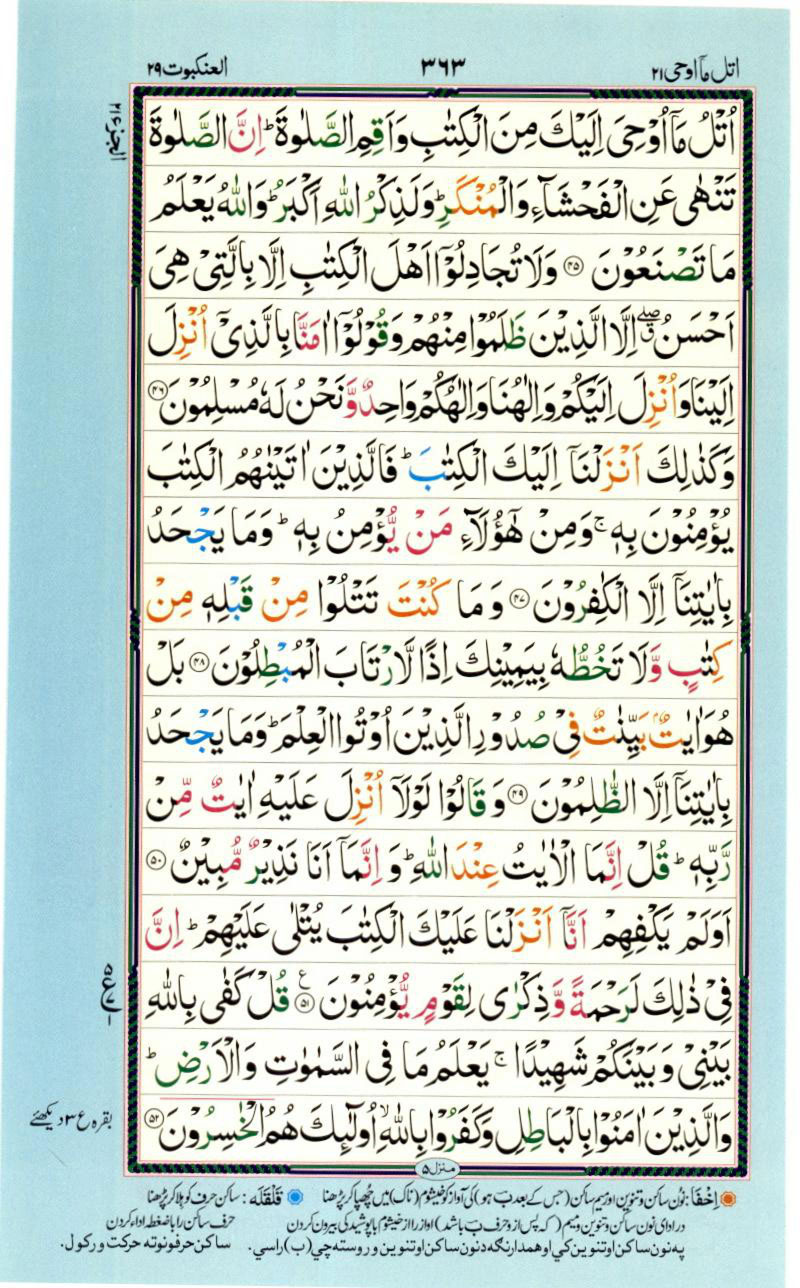 اتل مآ اوحی ۲۱
۳۶۳
العنکبوت ۲۹
اُتْلُ مَاۤ اُوْحِیَ اِلَیْكَ مِنَ الْكِتٰبِ وَاَقِمِ الصَّلٰوةَ ؕ اِنَّ الصَّلٰوةَ
تَنْهٰی عَنِ الْفَحْشَآءِ وَالْمُنْكَرِ ؕ وَلَذِكْرُ اللّٰهِ اَكْبَرُ ؕ وَاللّٰهُ یَعْلَمُ
مَا تَصْنَعُوْنَ ۝۴۵ وَلَا تُجَادِلُوْۤا اَهْلَ الْكِتٰبِ اِلَّا بِالَّتِیْ هِیَ
اَحْسَنُ ۖق اِلَّا الَّذِیْنَ ظَلَمُوْا مِنْهُمْ وَقُوْلُوْۤا اٰمَنَّا بِالَّذِیْۤ اُنْزِلَ
اِلَیْنَا وَاُنْزِلَ اِلَیْكُمْ وَاِلٰهُنَا وَاِلٰهُكُمْ وَاحِدٌ وَّنَحْنُ لَهٗ مُسْلِمُوْنَ ۝۴۶
وَكَذٰلِكَ اَنْزَلْنَاۤ اِلَیْكَ الْكِتٰبَ ؕ فَالَّذِیْنَ اٰتَیْنٰهُمُ الْكِتٰبَ
یُؤْمِنُوْنَ بِهٖ ۚ وَمِنْ هٰۤؤُلَآءِ مَنْ یُّؤْمِنُ بِهٖ ؕ وَمَا یَجْحَدُ
بِاٰیٰتِنَاۤ اِلَّا الْكٰفِرُوْنَ ۝۴۷ وَمَا كُنْتَ تَتْلُوْا مِنْ قَبْلِهٖ مِنْ
كِتٰبٍ وَّلَا تَخُطُّهٗ بِیَمِیْنِكَ اِذًا لَّارْتَابَ الْمُبْطِلُوْنَ ۝۴۸ بَلْ
هُوَ اٰیٰتٌۢ بَیِّنٰتٌ فِیْ صُدُوْرِ الَّذِیْنَ اُوْتُوا الْعِلْمَ ؕ وَمَا یَجْحَدُ
بِاٰیٰتِنَاۤ اِلَّا الظّٰلِمُوْنَ ۝۴۹ وَقَالُوْا لَوْلَاۤ اُنْزِلَ عَلَیْهِ اٰیٰتٌ مِّنْ
رَّبِّهٖ ؕ قُلْ اِنَّمَا الْاٰیٰتُ عِنْدَ اللّٰهِ ؕ وَاِنَّمَاۤ اَنَا نَذِیْرٌ مُّبِیْنٌ ۝۵۰
اَوَلَمْ یَكْفِهِمْ اَنَّاۤ اَنْزَلْنَا عَلَیْكَ الْكِتٰبَ یُتْلٰی عَلَیْهِمْ ؕ اِنَّ
فِیْ ذٰلِكَ لَرَحْمَةً وَّذِكْرٰی لِقَوْمٍ یُّؤْمِنُوْنَ ۝۵۱ ع قُلْ كَفٰی بِاللّٰهِ
بَیْنِیْ وَبَیْنَكُمْ شَهِیْدًا ۚ یَعْلَمُ مَا فِی السَّمٰوٰتِ وَالْاَرْضِ ؕ
وَالَّذِیْنَ اٰمَنُوْا بِالْبَاطِلِ وَكَفَرُوْا بِاللّٰهِ ۙ اُولٰٓئِكَ هُمُ الْخٰسِرُوْنَ ۝۵۲
بقرہ ع ۳ دیکھئے
منزل ۵
اِخْفَا: نون ساکن و تنوین اور میم ساکن (جس کے بعد ب ہو) کی آواز کو خیشوم (ناک) میں چھپا کر پڑھنا
قَلْقَلَه: ساکن حرف کو ہلا کر پڑھنا
در ادای نون ساکن و تنوین و میم (که پس از و حرف ب باشد) آواز را از خیشوم با پوشیدگی بیرون کردن
حرف ساکن را با ضغطه ادا کردن
په نون ساکن او تنوین کي او همدارنګه د نون ساکن او تنوین و روسته چي (ب) راسي.
ساکن حرفونو ته حرکت ورکول.